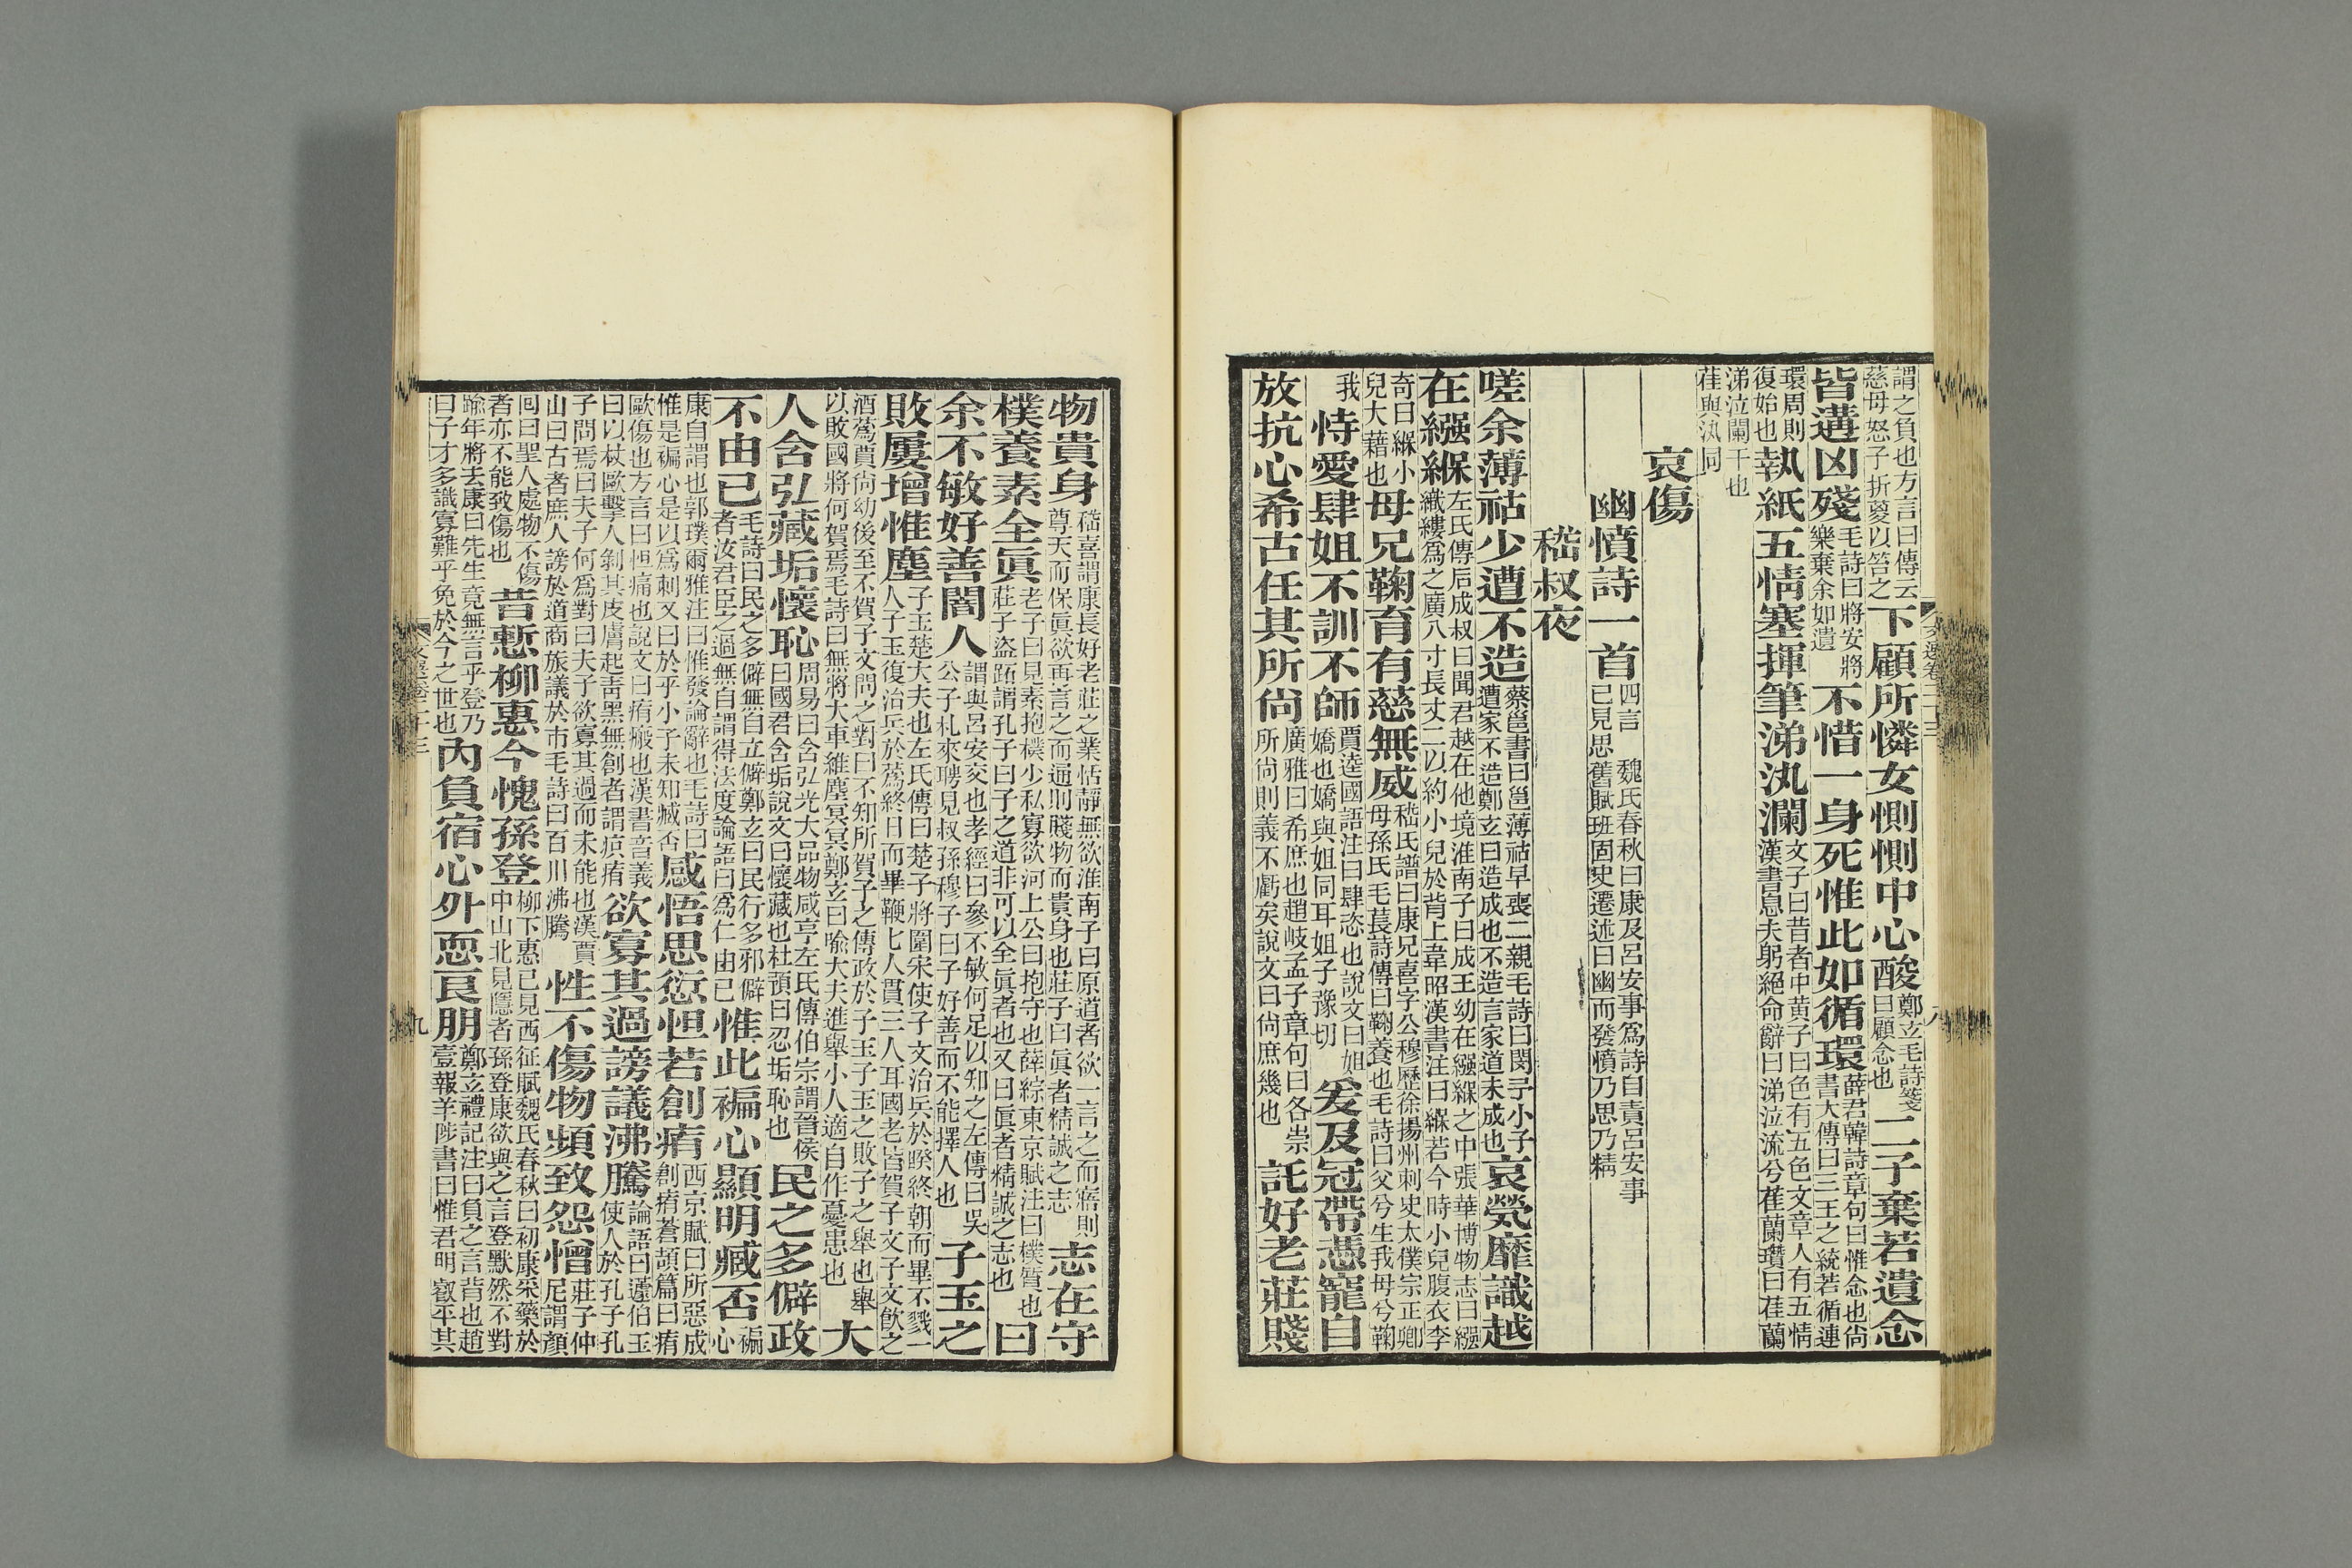 謂之負也方言曰傳云慈母怒子折葼以笞之下顧所憐女惻惻中心酸鄭玄毛詩箋曰顧念也二子棄若遺念
皆遘凶殘毛詩曰將安將樂棄余如遺不惜一身死惟此如循環薛君韓詩章句曰惟念也尚書大傳曰三王之統若循連
環周則復始也執紙五情塞揮筆涕汍瀾文子曰昔者中黄子曰色有五色文章人有五情漢書息夫躬絕命辭曰涕泣流兮萑蘭瓚曰萑蘭
涕泣闌干也萑與汍同
哀傷
幽憤詩一首四言 魏氏春秋曰康及呂安事爲詩自責呂安事已見思舊賦班固史遷述曰幽而發憤乃思乃精
嵇叔夜
嗟余薄祜少遭不造蔡邕書曰邕薄祜早喪二親毛詩曰閔予小子遭家不造鄭玄曰造成也不造言家道未成也哀煢靡識越
在繦緥左氏傳后成叔曰聞君越在他境淮南子曰成王幼在繦緥之中張華博物志曰繦織縷爲之廣八寸長丈二以約小兒於背上韋昭漢書注曰緥若今時小兒腹衣李
奇曰緥小兒大藉也母兄鞠育有慈無威嵇氏譜曰康兄喜字公穆歷徐揚州刺史太僕宗正卿母孫氏毛萇詩傳曰鞠養也毛詩曰父兮生我母兮鞠
我恃愛肆姐不訓不師賈逵國語注曰肆恣也說文曰姐嬌也嬌與姐同耳姐子豫切爰及冠帶憑寵自
放抗心希古任其所尚廣雅曰希庶也趙岐孟子章句曰各崇所尚則義不虧矣說文曰尚庶幾也託好老莊賤
物貴身嵇喜謂康長好老莊之業恬靜無欲淮南子曰原道者欲一言之而寤則尊天而保眞欲再言之而通則賤物而貴身也莊子曰眞者精誠之志志在守
樸養素全眞老子曰見素抱樸少私寡欲河上公曰抱守也薛綜東京賦注曰樸質也莊子盜跖謂孔子曰子之道非可以全眞者也又曰眞者精誠之志也曰
余不敏好善闇人謂與呂安交也孝經曰參不敏何足以知之左傳曰吳公子札來聘見叔孫穆子曰子好善而不能擇人也子玉之
敗屢增惟塵子玉楚大夫也左氏傳曰楚子將圍宋使子文治兵於睽終朝而畢不戮一人子玉復治兵於蔿終日而畢鞭七人貫三人耳國老皆賀子文子文飲之
酒蔿賈尚幼後至不賀子文問之對曰不知所賀子之傳政於子玉子玉之敗子之舉也舉以敗國將何賀焉毛詩曰無將大車維塵冥冥鄭玄曰喻大夫進舉小人適自作憂患也大
人含弘藏垢懷恥周易曰含弘光大品物咸亨左氏傳伯宗謂晉侯曰國君含垢說文曰懷藏也杜預曰忍垢恥也民之多僻政
不由己毛詩曰民之多僻無自立僻鄭玄曰民行多邪僻者汝君臣之過無自謂得法度論語曰爲仁由己惟此褊心顯明臧否褊心
康自謂也郭璞爾雅注曰惟發論辭也毛詩曰惟是褊心是以爲刺又曰於乎小子未知臧否感悟思愆怛若創痏西京賦曰所惡成創痏蒼頡篇曰痏
毆傷也方言曰怛痛也說文曰痏瘢也漢書音義曰以杖毆擊人剝其皮膚起靑黑無創者謂疻痏欲寡其過謗議沸騰論語曰蘧伯玉使人於孔子孔
子問焉曰夫子何爲對曰夫子欲寡其過而未能也漢賈山曰古者庶人謗於道商旅議於市毛詩曰百川沸騰性不傷物頻致怨憎莊子仲尼謂顏
回曰聖人處物不傷者亦不能致傷也昔慙柳惠今愧孫登柳下惠已見西征賦魏氏春秋曰初康采藥於中山北見隱者孫登康欲與之言登默然不對
踰年將去康曰先生竟無言乎登乃曰子才多識寡難乎免於今之世也內負宿心外恧良朋鄭玄禮記注曰負之言背也趙壹報羊陟書曰惟君明叡平其
九